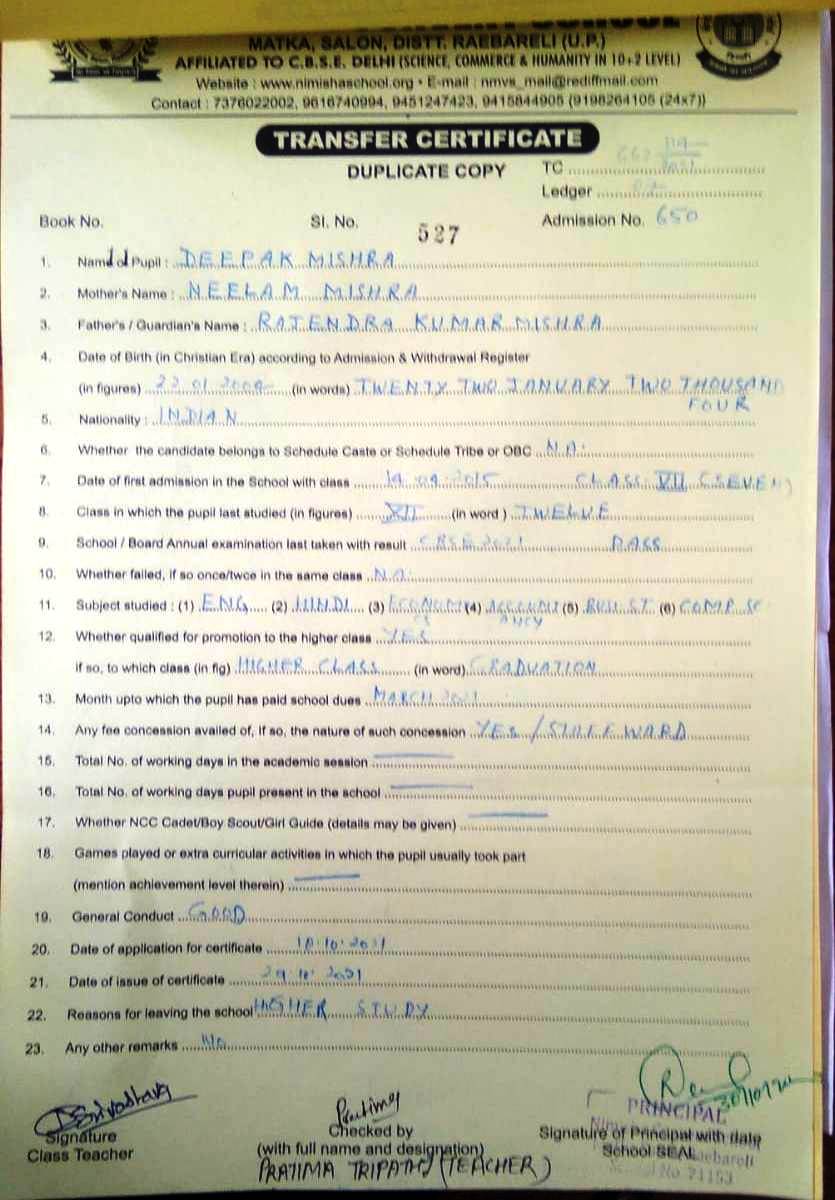 MATKA, SALON, DISTT. RAEBARELI (U.P.)
AFFILIATED TO C.B.S.E. DELHI (SCIENCE, COMMERCE & HUMANITY IN 10+2 LEVEL)
Website : www.nimishaschool.org • E-mail : nmvs_mail@rediffmail.com
Contact : 7376022002, 9616740994, 9451247423, 9415844905 (9198264105 (24x7))
TRANSFER CERTIFICATE
DUPLICATE COPY TC
Ledger
Book No. Sl. No. 527 Admission No. 650
1. Name of Pupil : DEEPAK MISHRA
2. Mother's Name : NEELAM MISHRA
3. Father's / Guardian's Name : RAJENDRA KUMAR MISHRA
4. Date of Birth (in Christian Era) according to Admission & Withdrawal Register
(in figures) 22.01.2004 (in words) TWENTY TWO JANUARY TWO THOUSAND
FOUR
5. Nationality : INDIAN
6. Whether the candidate belongs to Schedule Caste or Schedule Tribe or OBC N.A.
7. Date of first admission in the School with class 2015 CLASS VII (SEVEN)
8. Class in which the pupil last studied (in figures) XII (in word ) TWELVE
9. School / Board Annual examination last taken with result CBSE 2021 PASS
10. Whether failed, if so once/twce in the same class N.A.
11. Subject studied : (1) ENG (2) HINDI (3) ECONOMI (4) ACCOUNT (5) BUSI. ST (6) COMP. SC
CS ANCY
12. Whether qualified for promotion to the higher class YES
if so, to which class (in fig) HIGHER CLASS (in word) GRADUATION
13. Month upto which the pupil has paid school dues MARCH 2021
14. Any fee concession availed of, If so, the nature of such concession YES / STAFF WARD
15. Total No. of working days in the academic session
16. Total No. of working days pupil present in the school
17. Whether NCC Cadet/Boy Scout/Girl Guide (details may be given)
18. Games played or extra curricular activities in which the pupil usually took part
(mention achievement level therein)
19. General Conduct GOOD
20. Date of application for certificate 10.2021
21. Date of issue of certificate 29.10.2021
22. Reasons for leaving the school HIGHER STUDY
23. Any other remarks No
Srivastava Pratima
PRINCIPAL
Signature Checked by Signature of Principal with date
Class Teacher (with full name and designation) School SEAL
PRATIMA TRIPATHI (TEACHER)